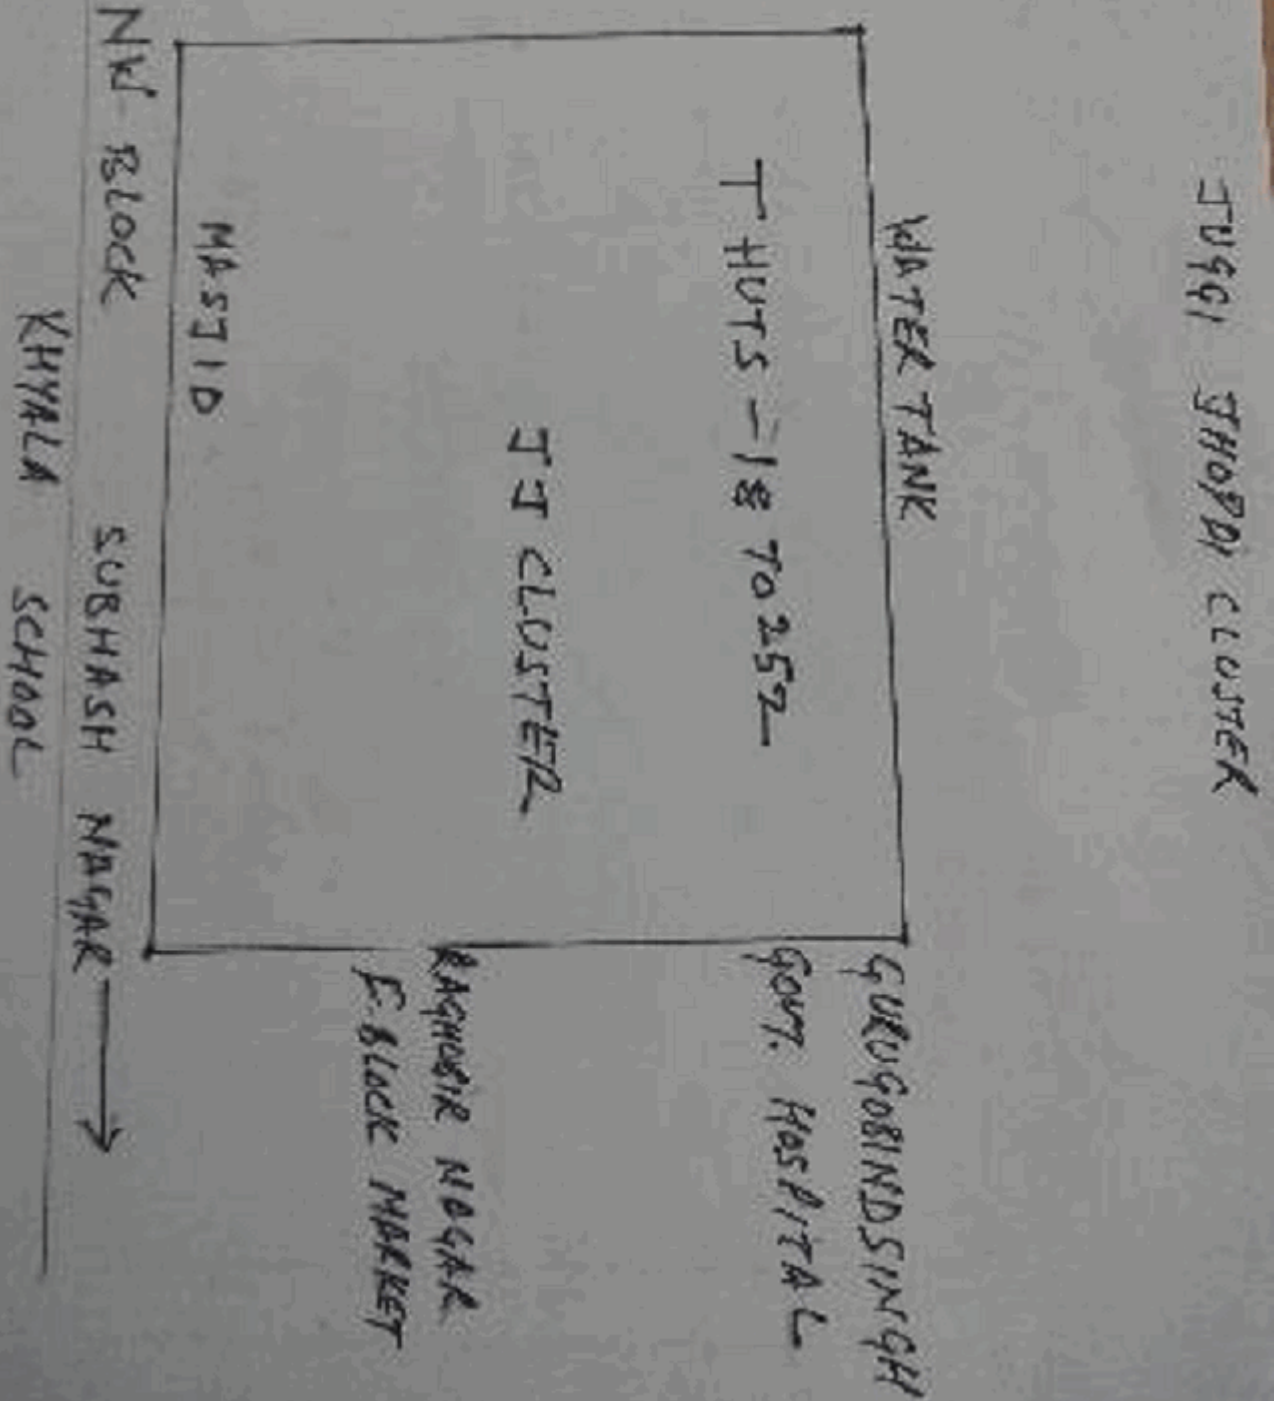 JUGGI JHOPDI CLUSTER
WATER TANK
T HUTS - 18 TO 252
JJ CLUSTER
MASJID
GURUGOBINDSINGH
GOVT. HOSPITAL
RAGHUBIR NAGAR
E-BLOCK MARKET
NW BLOCK SUBHASH NAGAR →
KHYALA SCHOOL